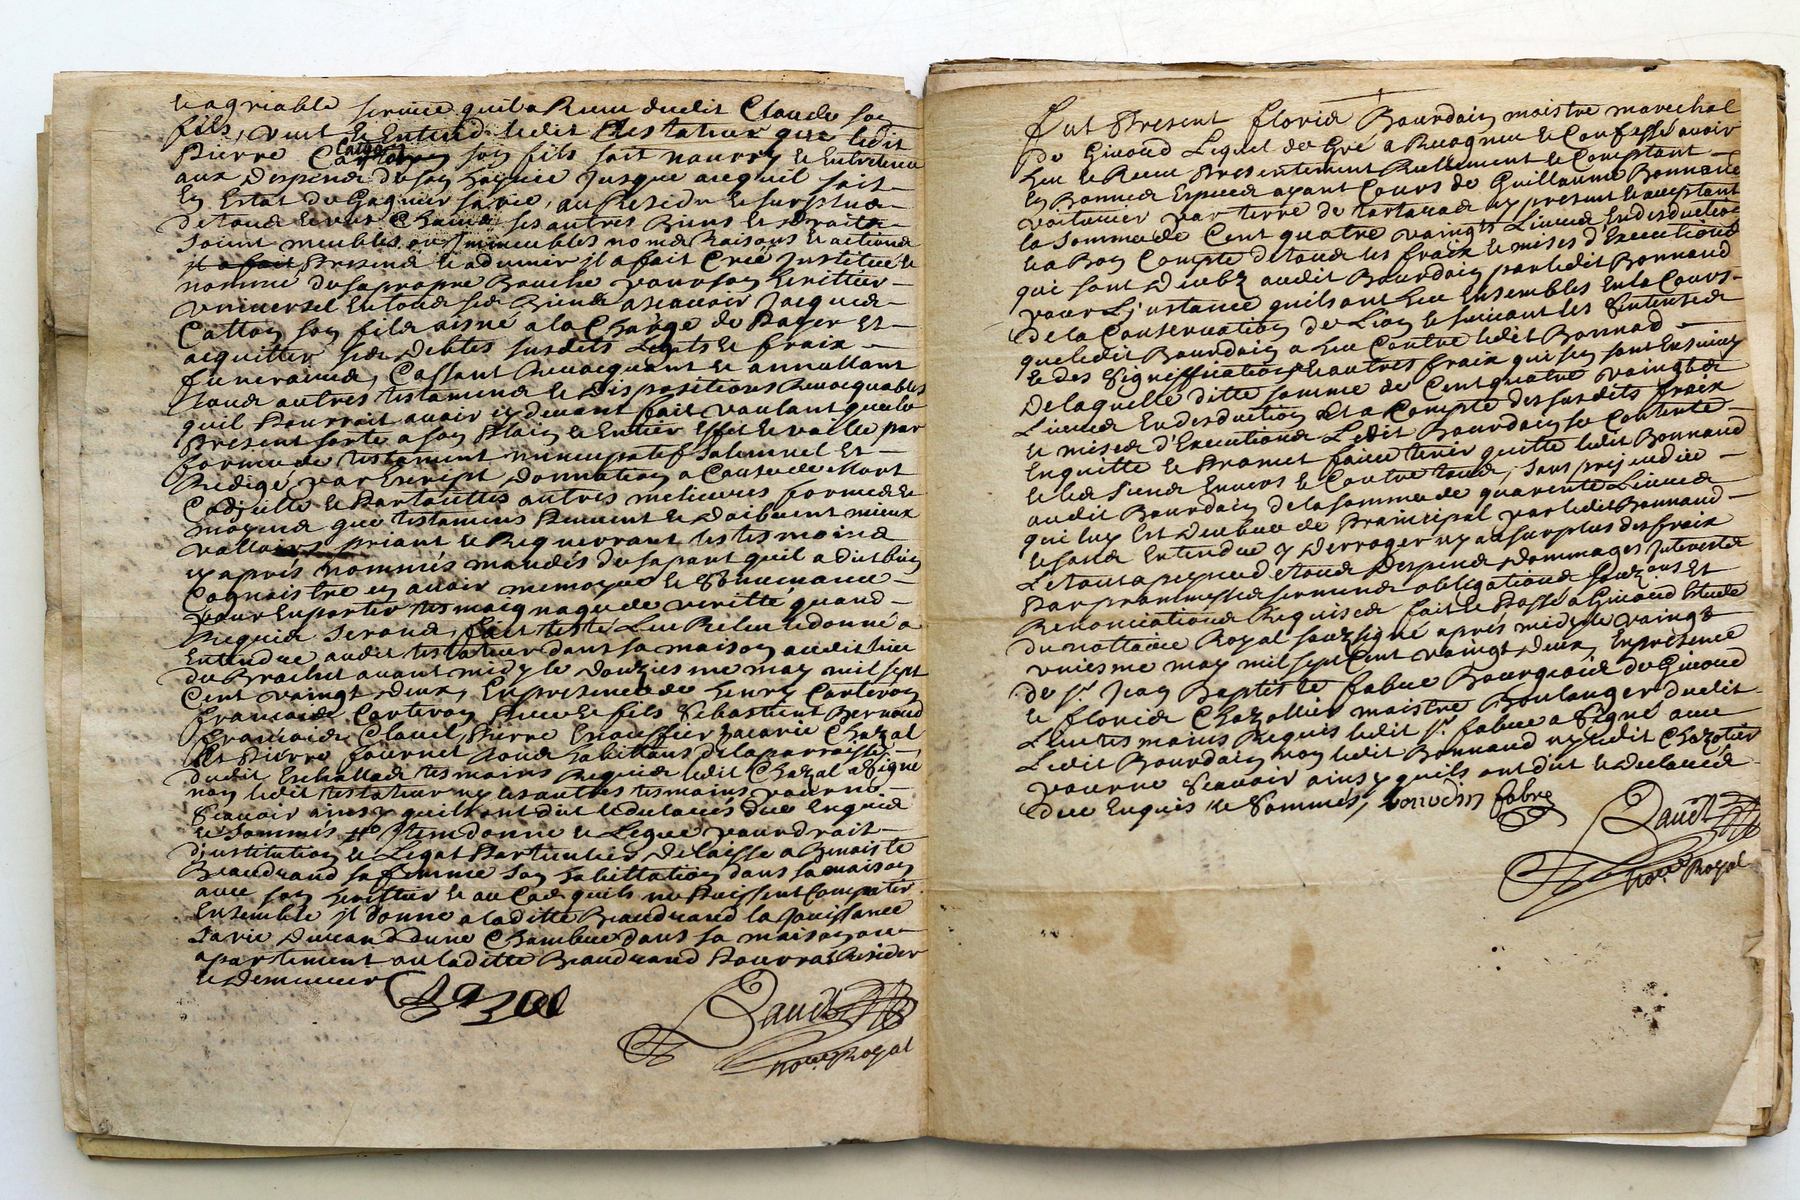 et agreable service quil a Receu dudit Claude son
fils, veut et Entend ledit Testateur que ledit
Pierre Catton son fils soit nourry et Entretenu
aux despend de son hoyrie Jusque acequil soit
En Estat de Gagner sa vie, au Residu et surplus
de tous et uns Chacuns ses autres Biens et droits
soient meubles ou Immeubles noms Raisons et actions
presens et advenir il a fait Creé Institué et
nommé de sa propre Bouche pour son heritier
universel En tous ses Biens ascavoir Jacques
Catton son fils aisné a la Charge de Payer Et
acquitter ses debtes susdits Legats et fraix
funeraires, Cassant Revocquant et annullant
tous autres testamens et dispositions Revocquables
quil Pourroit avoir cy devant fait voulant que le
Present sorte a son Plain et Entier Effet et vaille par
forme de testament nuncupatif solemnel Et
Redigé par Escript, donnation a Cause de Mort
Codicille et Par toutes autres meilleures formes et
moyens que testamens Peuvent et doibvent mieux
valloir, priant et Requerrant les tesmoins
cy apres nommés mandés de sa part quil a dit bien
Cognoistre en avoir memoyre et souvenance
pour En porter tesmoignage de verité quand
Requis seront, fait testé Leu Releu et donné a
Entendre audit testateur dans sa maison audit lieu
du Brachet avant midy le douziesme may mil sept
Cent vaingt deux, En presence de henry Carteron
françois Carteron Pere et fils Sebastient Bernoud
françois Clavel, Pierre Chouffier Zacarie Chazal
Et Pierre fournet tous habittans de la parroisse
dudit Eschallas tesmoins Requis ledit Chazal a Signé
non ledit testateur ny les autres tesmoins pour ne
Scavoir ainsy quils ont dit et declaré due Enquis
et Sommés Item donne et Legue pour droit
d'institution et Legat Particulier delaisse a Benoiste
Beaudrand sa femme son habittation dans sa maison
avec son heritier et au Cas quils ne Puissent Compatir
Ensemble il donne a la ditte Beaudrand la Jouissance
sa vie durand d'une Chambre dans sa maison ou
apartement ou la ditte Beaudrand Pourra Resider
et Demeurer
Chazal
Daudt
no.re Royal
fut Present floris Bourdain maistre marechal
de Givord Lequel de Gré a Recogneu et Confessé avoir
heu et Receu Presentement Reellement et Comptant
En Bonnes Especes ayant Cours de Guillaume Bonnand
voiturier par terre de tartaras cy present et acceptant
la Somme de Cent quatre vaingts Livres, En desduction
et a Bon Compte de tous les fraix et mises d'Executions
qui sont deubz audit Bourdain par ledit Bonnand
pour L'instance quils ont heu Ensembles En la Cours
de la Conservation de Lion et suivant les Sentences
que ledit Bourdain a heu Contre ledit Bonnad
et des Signiffications et autres fraix qui sen sont Ensuivy
de laquelle ditte somme de Cent quatre vaingtz
Livres En desduction et a Compte des susdits fraix
et mises d'Executions Ledit Bourdain se Contente
En quitte et Promet faire tenir quitte ledit Bonnand
et les siens Envers et Contre tous, sans prejudice
audit Bourdain de la somme de quarente Livres
qui luy Est deubue de Principal par ledit Bonnand
et sans Entendre y desroger ny au surplus des fraix
Le tout a peyne de tous despens dommages Interests
Par promesses serments obligations soubz ons Et
Renonciations Requises fait et Passé a Givord Estude
du nottaire Royal soubzsigné apres midy le vaingt
uniesme may mil sept Cent vaingt deux, En presence
de s.r Jean Baptiste fabre Bourgeois de Givord
et floris Chazottier maistre Boulanger dudit
Lieu tesmoins Requis ledit s.r fabre a Signé avec
Ledit Bourdain non ledit Bonnand ny ledit Chazotier
pour ne Scavoir ainsy quils ont dit et declaré
due Enquis et Sommés, bourdin fabre
Daudt
no.re Royal